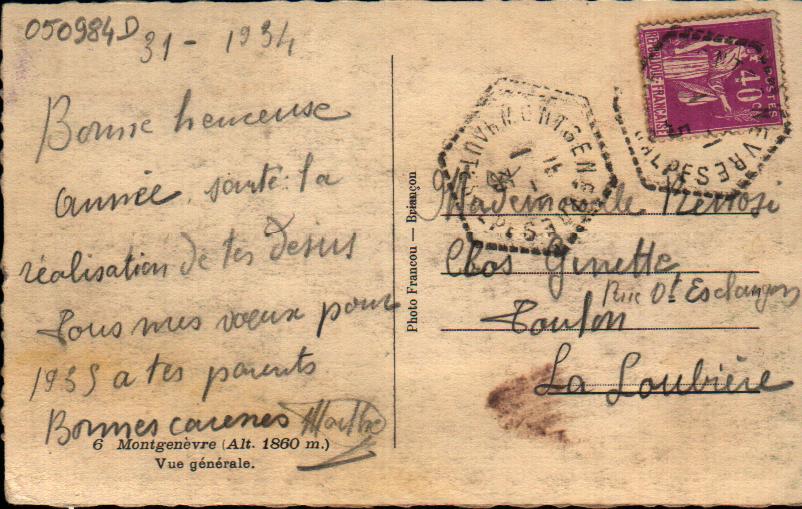 050984D
31 - 1934
Bonne heureuse
année, santé la
réalisation de tes desirs
Tous mes voeux pour
1935 a tes parents
Bonnes caresses Marthe
6 Montgenèvre (Alt. 1860 m.)
Vue générale.
Photo Francou — Briançon
POSTES
40c
REPUBLIQUE FRANÇAISE
MONTGENEVRE
Mademoiselle
Clos Ginette
Rue Dt Esclangon
Toulon
La Loubière